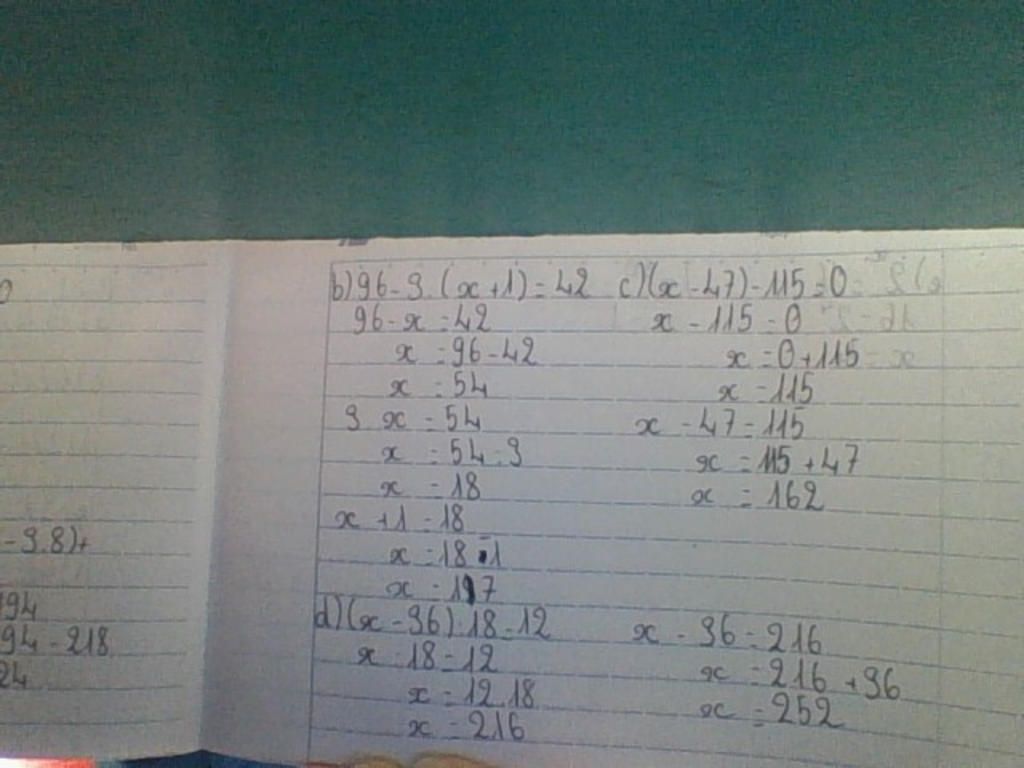 b) 96 - 3. (x + 1) = 42
96 - x = 42
x = 96 - 42
x = 54
3 x = 54
x = 54 : 3
x = 18
x + 1 = 18
x = 18 - 1
x = 17
c) (x - 47) - 115 = 0
x - 115 = 0
x = 0 + 115
x = 115
x - 47 = 115
x = 115 + 47
x = 162
d) (x - 36) : 18 = 12
x : 18 = 12
x = 12.18
x = 216
x - 36 = 216
x = 216 + 36
x = 252
- 3.8) +
194
94 - 218
24